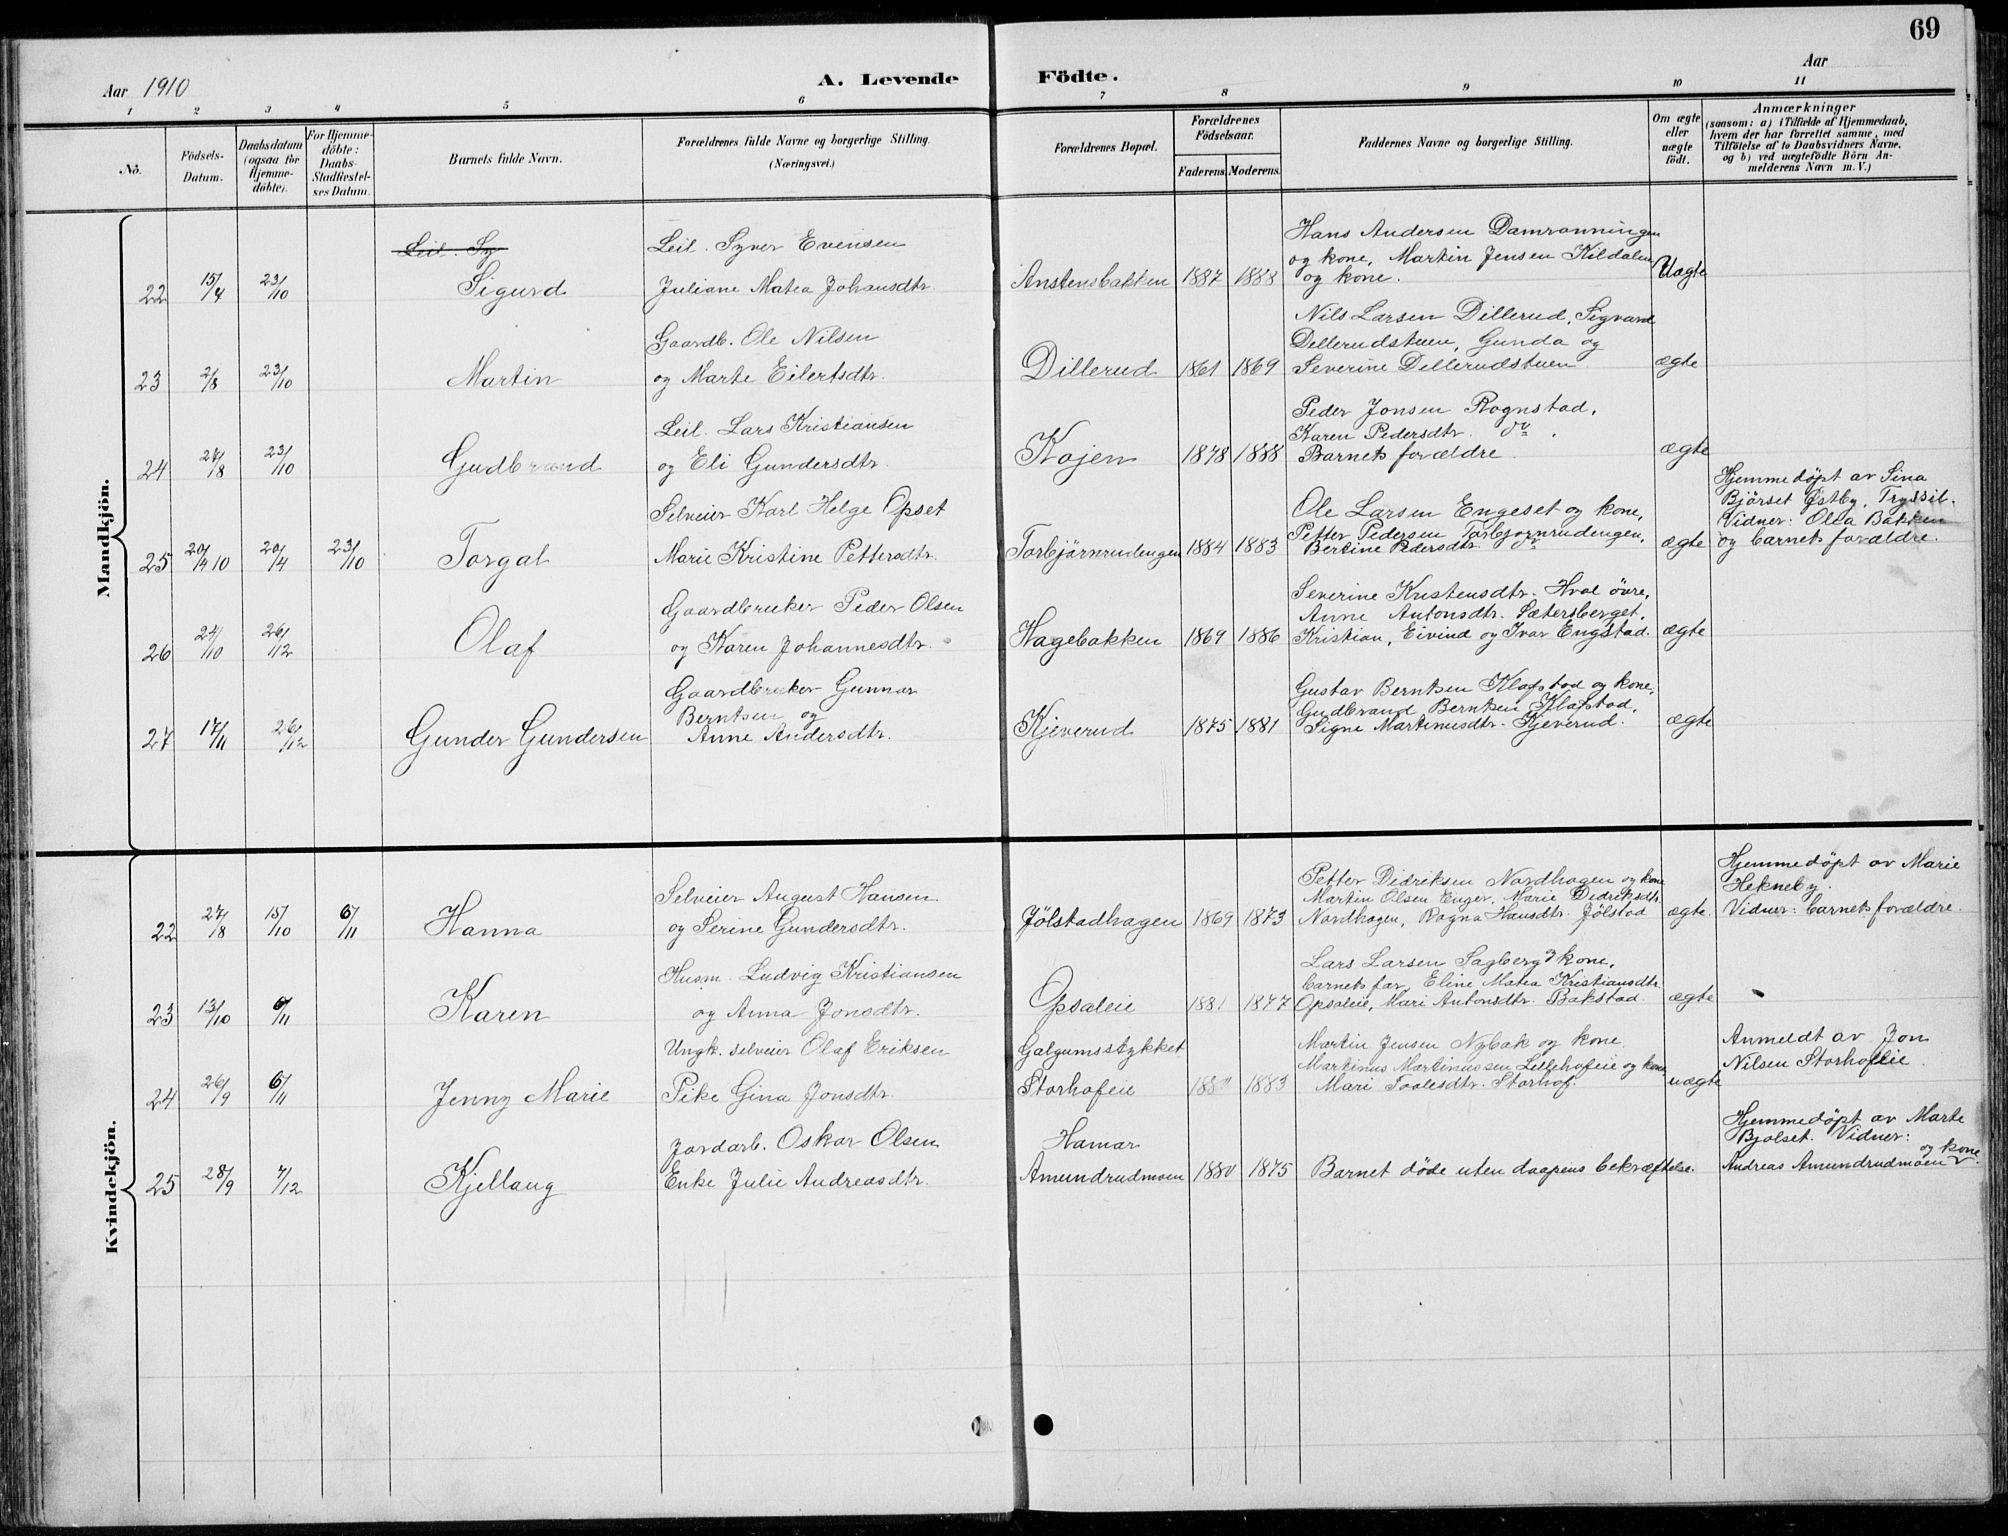 69
Aar 1910
A. Levende Födte.
Aar
1 2 3 4 5 6 7 8 9 10 11
No.
Födsels-Datum.
Daabsdatum (ogsaa for Hjemme-döbte).
For Hjemme-döbte: Daabs-Stadfæstel-ses Datum.
Barnets fulde Navn.
Forældrenes fulde Navne og borgerlige Stilling.
(Næringsvei.)
Forældrenes Bopæl.
Forældrenes Födselsaar.
Faderens. Moderens.
Faddernes Navne og borgerlige Stilling.
Om ægte eller uægte födt.
Anmærkninger
(saasom: a) i Tilfælde af Hjemmedaab,
hvem der har forrettet samme, med
Tilföielse af to Daabsvidners Navne,
og b) ved uægtefödte Börn An-
melderens Navn m. V.)
Mandkjön.
Leil. Sy
22 15/4 23/10 Sigurd
Leil. Syver Evensen
Juliane Matea Johansdtr.
Anstensbakken 1887 1888
Hans Andersen Damrønningen
og kone, Martin Jensen Kildalen
og kone.
Uægte
23 2/8 23/10 Martin
Gaardb. Ole Nilsen
og Marte Eilertsdtr.
Dillerud 1861 1869
Nils Larsen Dillerud, Sigvard
Dellerudstuen, Gunda og
Severine Dellerudstuen
ægte
24 27/8 23/10 Gudbrand
Leil. Lars Kristiansen
og Eli Gundersdtr.
Kojen 1878 1888
Peder Jonsen Rognstad,
Karen Pedersdtr. do.
Barnets forældre.
ægte
25 20/4 10 20/4 23/10 Torgal
Selveier Karl Helge Opset
Marie Kristine Pettersdtr.
Torbjörnrudengen 1884 1883
Ole Larsen Engeset og kone,
Petter Pedersen Torbjornrudengen,
Bertine Pedersdtr. do
ægte
Hjemmedøpt av Sina
Bjørset Østby, Trysil.
Vidner: Olea Bakken
og barnets forældre.
26 24/10 26/12 Olaf
Gaardbruker Peder Olsen
og Karen Johannesdtr.
Hagebakken 1869 1886
Severine Kristensdtr. Hval øvre,
Anne Antonsdtr. Sætersberget,
Kristian, Eivind og Ivar Engstad.
ægte
27 17/11 26/12 Gunder Gundersen
Gaardbruker Gunnar
Berntsen og
Anne Andersdtr.
Kjeverud 1875 1881
Gustav Berntsen Klafstad og kone,
Gudbrand Berntsen Klafstad,
Signe Martinusdtr. Kjeverud.
ægte
Kvindekjön.
22 27/8 15/10 6/11 Hanna
Selveier August Hansen
og Serine Gundersdtr.
Jølstadhagen 1869 1873
Petter Didriksen Nordhagen og kone
Martin Olsen Enger, Marie Didriksdtr.
Nordhagen, Ragna Hansdtr. Jølstad
ægte.
Hjemmedøpt av Marie
Hekneby.
Vidner: barnets forældre.
23 13/10 6/11 Karen
Husm. Ludvig Kristiansen
og Anna Jonsdtr.
Opsaleie 1881 1877
Lars Larsen Sagberg & kone,
barnets far, Eline Matea Kristiansdtr.
Opsaleie, Mari Antonsdtr. Bakstad
ægte
24 26/9 6/11 Jenny Marie
Ungk. selveier Olaf Eriksen
Pike Gina Jonsdtr.
Galgumsstykket
Storhofeie 1883
Martin Jensen Nybak og kone
Martinus Martinussen Lillehofeie og kone
Mari Toolesdtr. Storhof.
uægte
Anmeldt av Jon
Nilsen Storhofeie.
25 28/9 4/12 Kjellaug
Jordarb. Oskar Olsen
Enke Julie Andreasdtr.
Hamar
Amundrudmoen 1880 1875
Barnet døde uten daapens bekræftelse.
Hjemmedøpt av Marte
Bjølset. Vidner:
Andreas Amundrudmoen og kone.